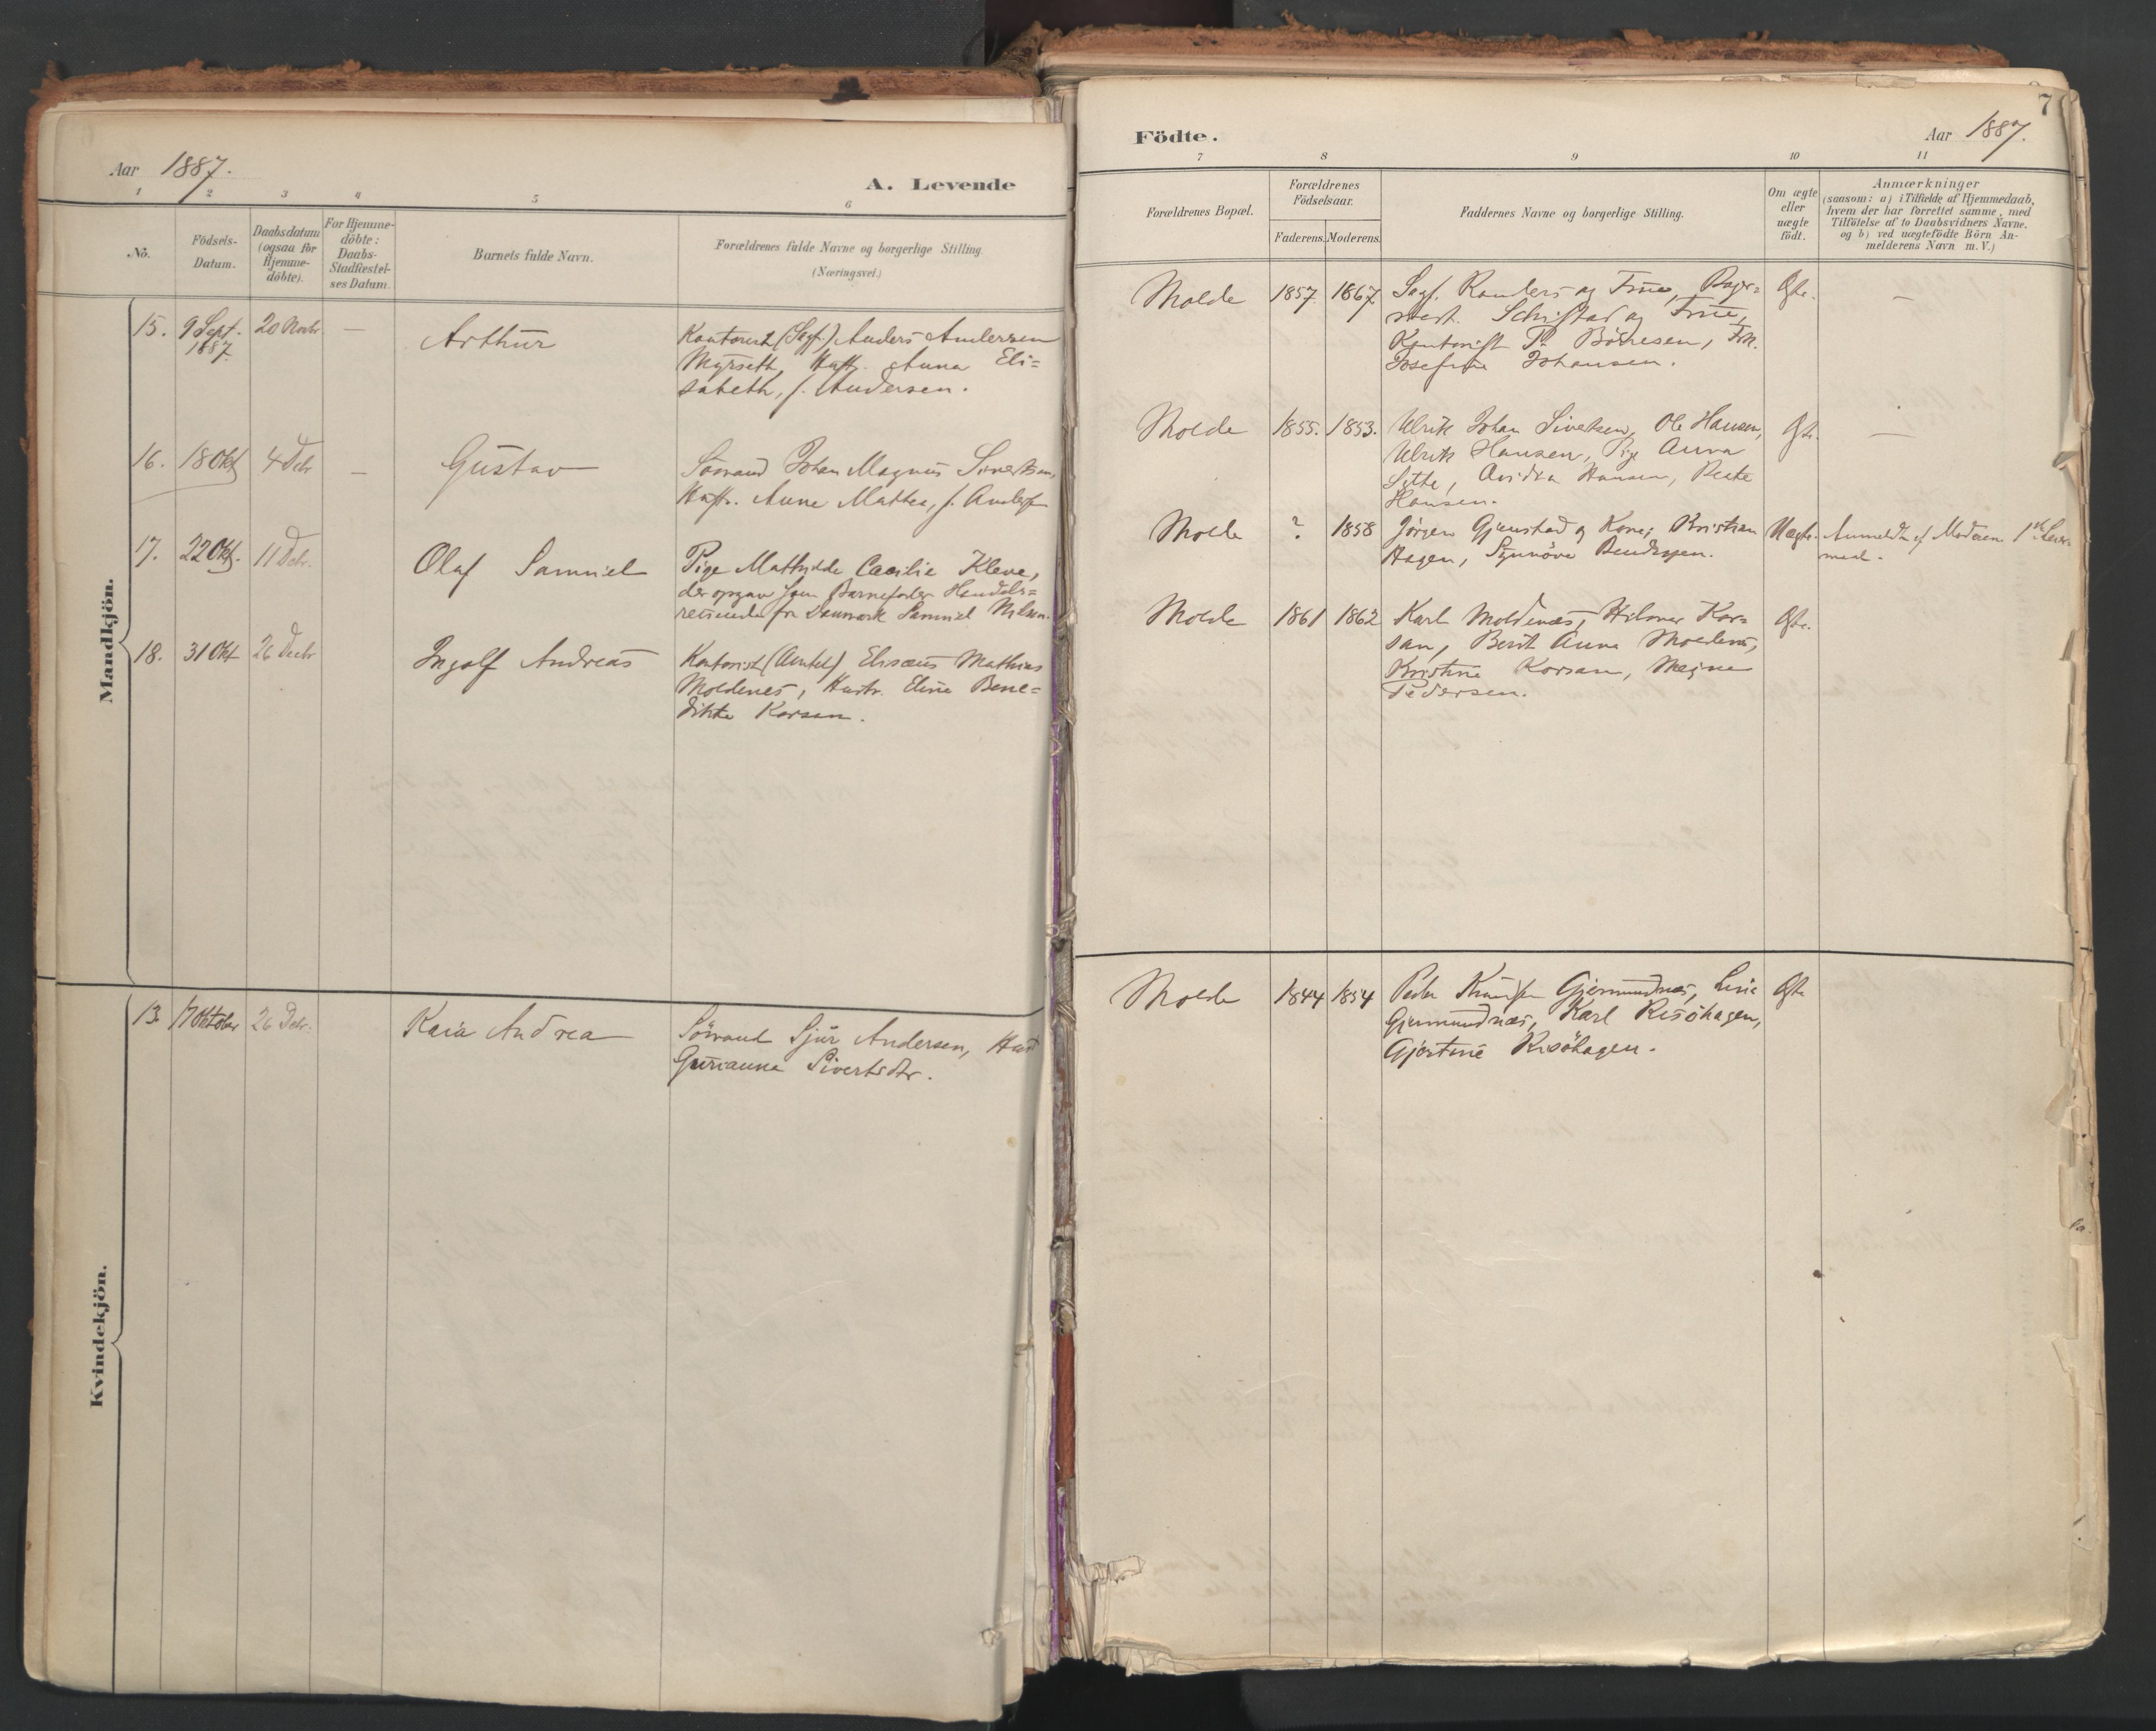 Aar 1887.
A. Levende
1 2 3 4 5 6
No.
Födsels-
Datum.
Daabsdatum
(ogsaa for
Hjemme-
döbte).
For Hjemme-
döbte:
Daabs-
Stadfæstel-
ses Datum.
Barnets fulde Navn.
Forældrenes fulde Navne og borgerlige Stilling.
(Næringsvei.)
Mandkjön.
15. 9 Sept. 20 Novbr. — Arthur Kontorist (Sagf.) Anders Andersen
1887. Myrseth, Hustr. Anna Eli=
sabeth, f. Andersen.
16. 18 Okt 4 Debr — Gustav Sömand Johan Magnus Sivertsen,
Hustr. Anne Mathea, f.
17. 22 Okt. 11 Debr. Olaf Samuel Pige Mathilde Cæcilie Kleve,
der opgav som Barnefader Handels=
reisende fra Danmark Samuel Nilsen.
18. 31 Okt 26 Decbr Ingolf Andreas Kontorist (Amtet) Elisæus Mathias
Moldenes, Hustr. Eline Bene=
dikte Korsan.
Kvindekjön.
13. 17 Oktober 26 Debr. Kaia Andrea Sömand Sjur Andersen, Hust
Gurianna Sivertsdtr.
7
Födte.
Aar 1887.
7 8 9 10 11
Forældrenes Bopæl.
Forældrenes
Födselsaar.
Faderens. Moderens.
Faddernes Navne og borgerlige Stilling.
Om ægte
eller
uægte
födt.
Anmærkninger
(saasom: a) i Tilfælde af Hjemmedaab,
hvem der har forrettet samme, med
Tilföielse af to Daabsvidners Navne,
og b) ved uægtefödte Börn An-
melderens Navn m. V.)
Molde 1857 1867 Sagf. Randers og Frue, Bager=
mest. Schistad og Frue,
Kontorist P. Börresen, Frk.
Josefine Johansen.
Ægte. —
Molde 1855. 1853. Ulrik Johan Sivertsen, Ole Hansen,
Ulrik Hansen, Pige Anna
Hansen, Beate
Hansen.
Ægte. —
Molde ? 1858 Jörgen Gjenstad og Kone, Kristian
Hagen, Synnöve Bendixen.
Uægte. Anmeldt af Moderen 1ste
Molde 1861 1862 Karl Moldenæs, Hilmer Kor=
san, Berit Anna Moldenes,
Kristine Korsan, Magna
Pedersen.
Ægte.
Molde 1844 1854 Peder Knudsen Gjermundnæs, Line
Gjermundnæs, Karl Risöhagen,
Gjertine Risöhagen.
Ægte